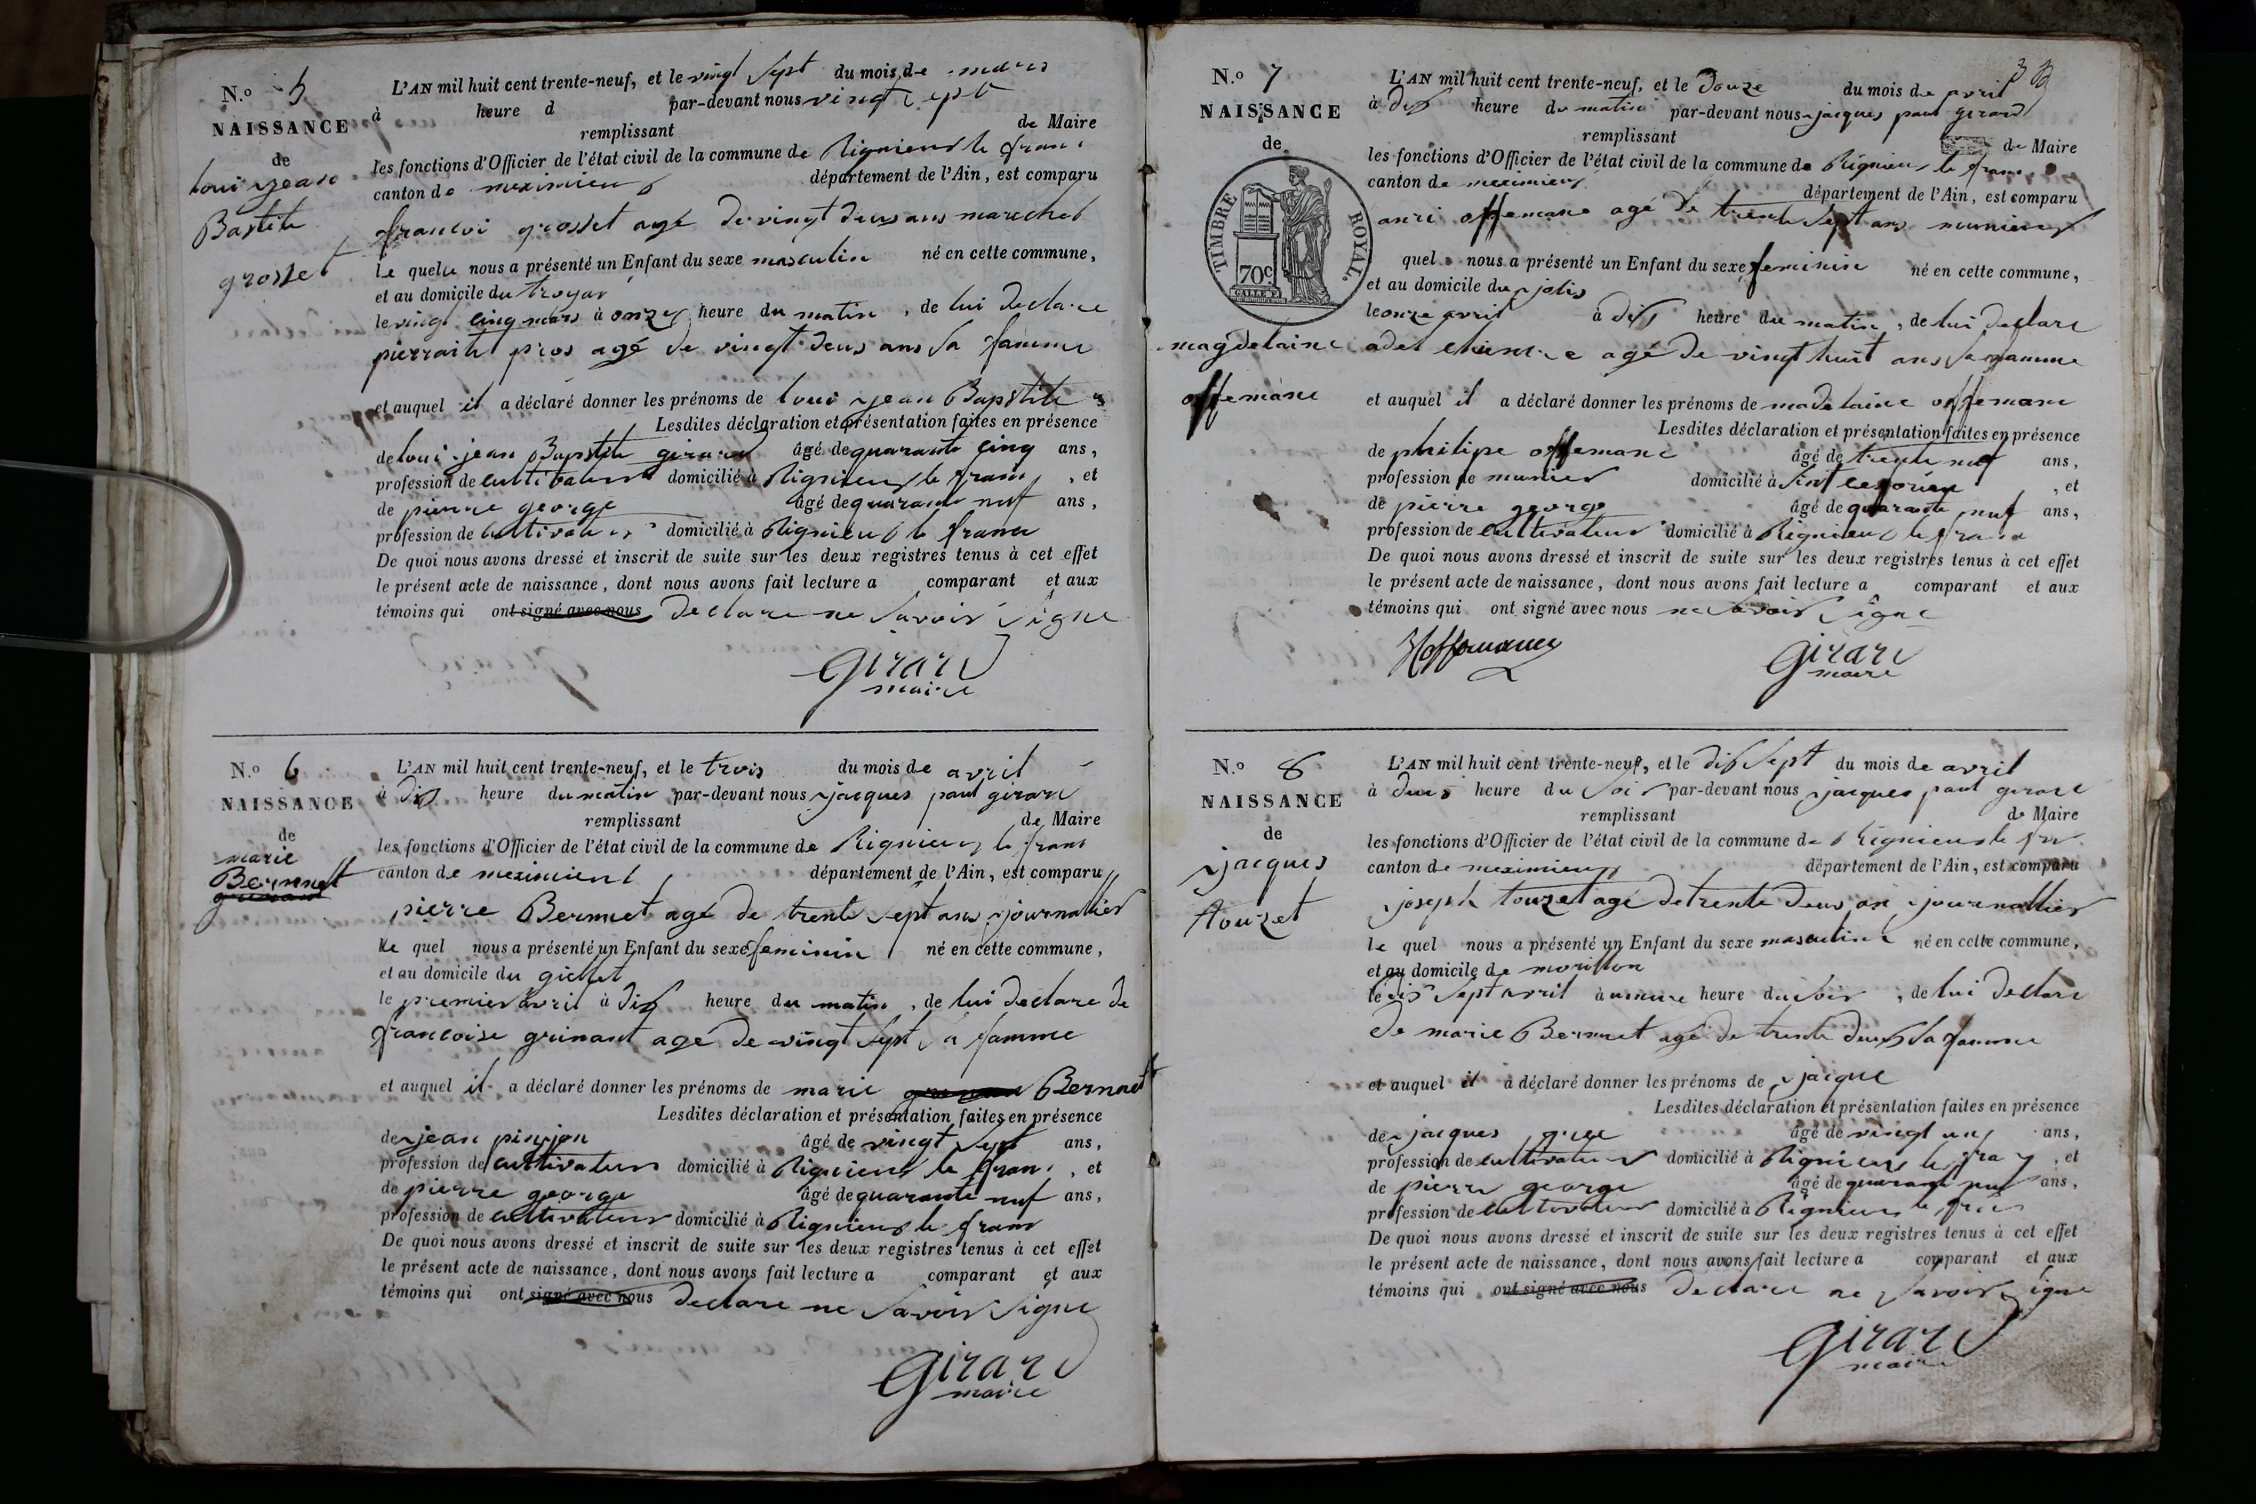 N.o 5
NAISSANCE
de
loui jean
Bastite
grosset
L'AN mil huit cent trente-neuf, et le vingt sept du mois de mars
à heure d par-devant nous vingt sept
remplissant de Maire
les fonctions d'Officier de l'état civil de la commune de Rignieux le franc
canton de meximieux département de l'Ain, est comparu
francoi grosset agé de vingt deus ans marechal
le quele nous a présenté un Enfant du sexe masculin né en cette commune,
et au domicile du
le vingt cinq mars à onze heure du matin, de lui declare
pierraite pros agé de vingt deus ans sa famme
et auquel il a déclaré donner les prénoms de loui jean Bapstite
Lesdites déclaration et présentation faites en présence
de loui jean Bapstite girard âgé de quarante cinq ans,
profession de cultivateur domicilié à Rignieux le franc, et
de pierre george âgé de quarante neuf ans,
profession de cultivateur domicilié à Rignieux le franc
De quoi nous avons dressé et inscrit de suite sur les deux registres tenus à cet effet
le présent acte de naissance, dont nous avons fait lecture a comparant et aux
témoins qui ont signé avec nous declare ne savoir signe
Girard
maire
N.o 6
NAISSANCE
de
marie
Bernnet
L'AN mil huit cent trente-neuf, et le trois du mois de avril
à dis heure du matin par-devant nous jacques paul girard
remplissant de Maire
les fonctions d'Officier de l'état civil de la commune de Rignieux le franc
canton de meximieux département de l'Ain, est comparu
pierre Bernnet agé de trente sept ans journallier
le quel nous a présenté un Enfant du sexe feminin né en cette commune,
et au domicile du
le premier avril à dis heure du matin, de lui declare de
francoise grinant agé de vingt sept sa famme
et auquel il a déclaré donner les prénoms de marie Bernnet
Lesdites déclaration et présentation faites en présence
de jean pinjon âgé de vingt sept ans,
profession de cultivateur domicilié à Rignieux le franc, et
de pierre george âgé de quarante neuf ans,
profession de cultivateur domicilié à Rignieux le franc
De quoi nous avons dressé et inscrit de suite sur les deux registres tenus à cet effet
le présent acte de naissance, dont nous avons fait lecture a comparant et aux
témoins qui ont signé avec nous declare ne savoir signe
Girard
maire
N.o 7
NAISSANCE
de
TIMBRE ROYAL.
70c.
magdelaine
offemane
L'AN mil huit cent trente-neuf, et le douze du mois de avril
à dis heure du matin par-devant nous jacques paul girard
remplissant de Maire
les fonctions d'Officier de l'état civil de la commune de Rignieux le franc
canton de meximieux département de l'Ain, est comparu
anri offemane agé de trente sept ans munieur
quel nous a présenté un Enfant du sexe feminin né en cette commune,
et au domicile du
le onze avril à dis heure du matin, de lui declare
adel agé de vingt huit ans sa famme
et auquel il a déclaré donner les prénoms de madelaine offemane
Lesdites déclaration et présentation faites en présence
de philipe offemane âgé de trente neuf ans,
profession de munier domicilié à, et
de pierre george âgé de quarante neuf ans,
profession de cultivateur domicilié à Rignieux le franc
De quoi nous avons dressé et inscrit de suite sur les deux registres tenus à cet effet
le présent acte de naissance, dont nous avons fait lecture a comparant et aux
témoins qui ont signé avec nous ne savoir signe
Hoffmann Girard
maire
N.o 8
NAISSANCE
de
jacques
touzet
L'AN mil huit cent trente-neuf, et le dis sept du mois de avril
à deus heure du soir par-devant nous jacques paul girard
remplissant de Maire
les fonctions d'Officier de l'état civil de la commune de Rignieux le fr
canton de meximieux département de l'Ain, est comparu
joseph touzet agé de trente deus an journallier
le quel nous a présenté un Enfant du sexe masculin né en cette commune,
et au domicile de morillon
le dis sept avril à heure du soir, de lui declare
de marie Bernnet agé de trente deus sa famme
et auquel il à déclaré donner les prénoms de jacque
Lesdites déclaration et présentation faites en présence
de jacques âgé de vingt un ans,
profession de cultivateur domicilié à Rignieux le franc, et
de pierre george âgé de quarante neuf ans,
profession de cultivateur domicilié à Rignieux le franc
De quoi nous avons dressé et inscrit de suite sur les deux registres tenus à cet effet
le présent acte de naissance, dont nous avons fait lecture a comparant et aux
témoins qui ont signé avec nous declare ne savoir signe
Girard
maire